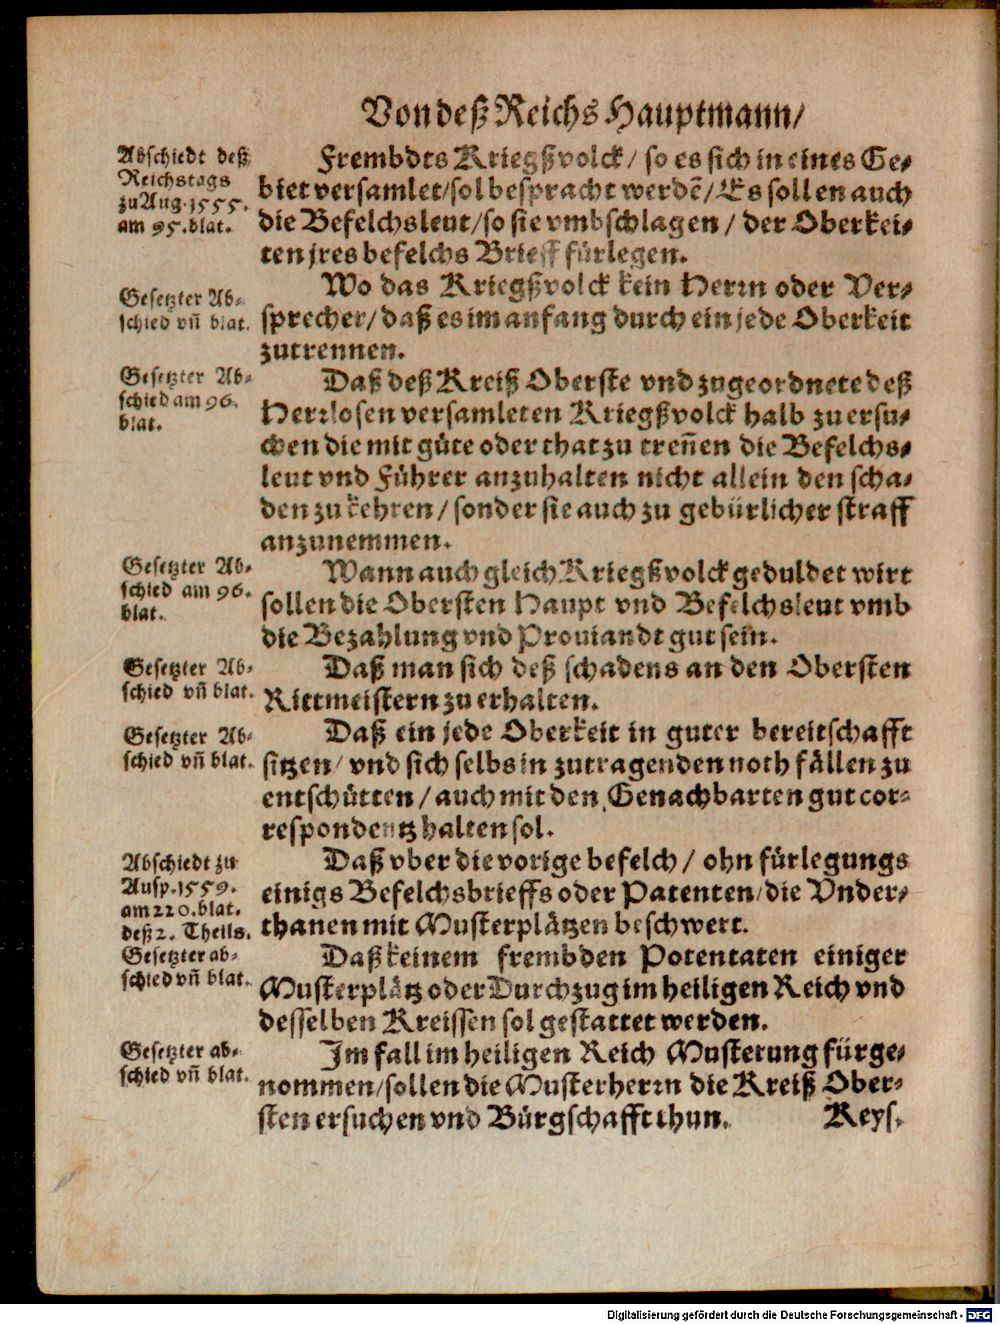 Von deß Reichs Hauptmann/
Abschiedt deß
Reichstags
zu Aug. 1555.
am 95. blat.
Frembdts Kriegßvolck / so es sich in eines Ge-
biet versamlet/sol bespracht werdē/Es sollen auch
die Befelchsleut/so sie vmbschlagen / der Oberkei-
ten jres befelchs Brieff fürlegen.
Gesetzter Ab-
schied vn̄ blat.
Wo das Kriegßvolck kein Herrn oder Ver-
sprecher/daß es im anfang durch ein jede Oberkeit
zutrennen.
Gesetzter Ab-
schied am 96.
blat.
Daß deß Kreiß Oberste vnd zugeordnete deß
Herrlosen versamleten Kriegßvolck halb zu ersu-
chen die mit güte oder that zu treñen die Befelchs-
leut vnd Führer anzuhalten nicht allein den scha-
den zu kehren / sonder sie auch zu gebürlicher straff
anzunemmen.
Gesetzter Ab-
schied am 96.
blat.
Wann auch gleich Kriegßvolck geduldet wirt
sollen die Obersten Haupt vnd Befelchsleut vmb
die Bezahlung vnd Prouiandt gut sein.
Gesetzter Ab-
schied vn̄ blat.
Daß man sich deß schadens an den Obersten
Rittmeistern zu erhalten.
Gesetzter Ab-
schied vn̄ blat.
Daß ein jede Oberkeit in guter bereitschafft
sitzen/ vnd sich selbs in zutragenden noth fällen zu
entschütten / auch mit den Genachbarten gut cor-
respondentz halten sol.
Abschiedt zu
Ausp. 1559.
am 220. blat.
deß 2. Theils.
Daß vber die vorige befelch / ohn fürlegungs
einigs Befelchsbrieffs oder Patenten/die Vnder-
thanen mit Musterplätzen beschwert.
Gesetzter ab-
schied vn̄ blat.
Daß keinem frembden Potentaten einiger
Musterplätz oder Durchzug im heiligen Reich vnd
desselben Kreissen sol gestattet werden.
Gesetzter ab-
schied vn̄ blat.
Im fall im heiligen Reich Musterung fürge-
nommen/sollen die Musterherrn die Kreiß Ober-
sten ersuchen vnd Bürgschafft thun.
Reys.
Digitalisierung gefördert durch die Deutsche Forschungsgemeinschaft - DFG